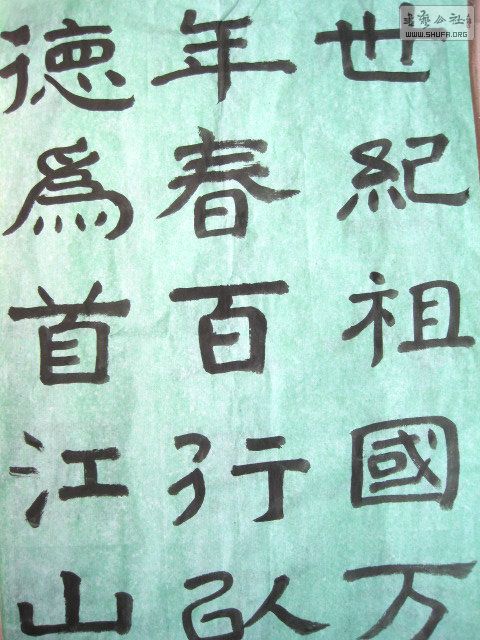 世紀祖國万
年春百行㠯
德爲首江山
書藝公社
WWW.SHUFA.ORG